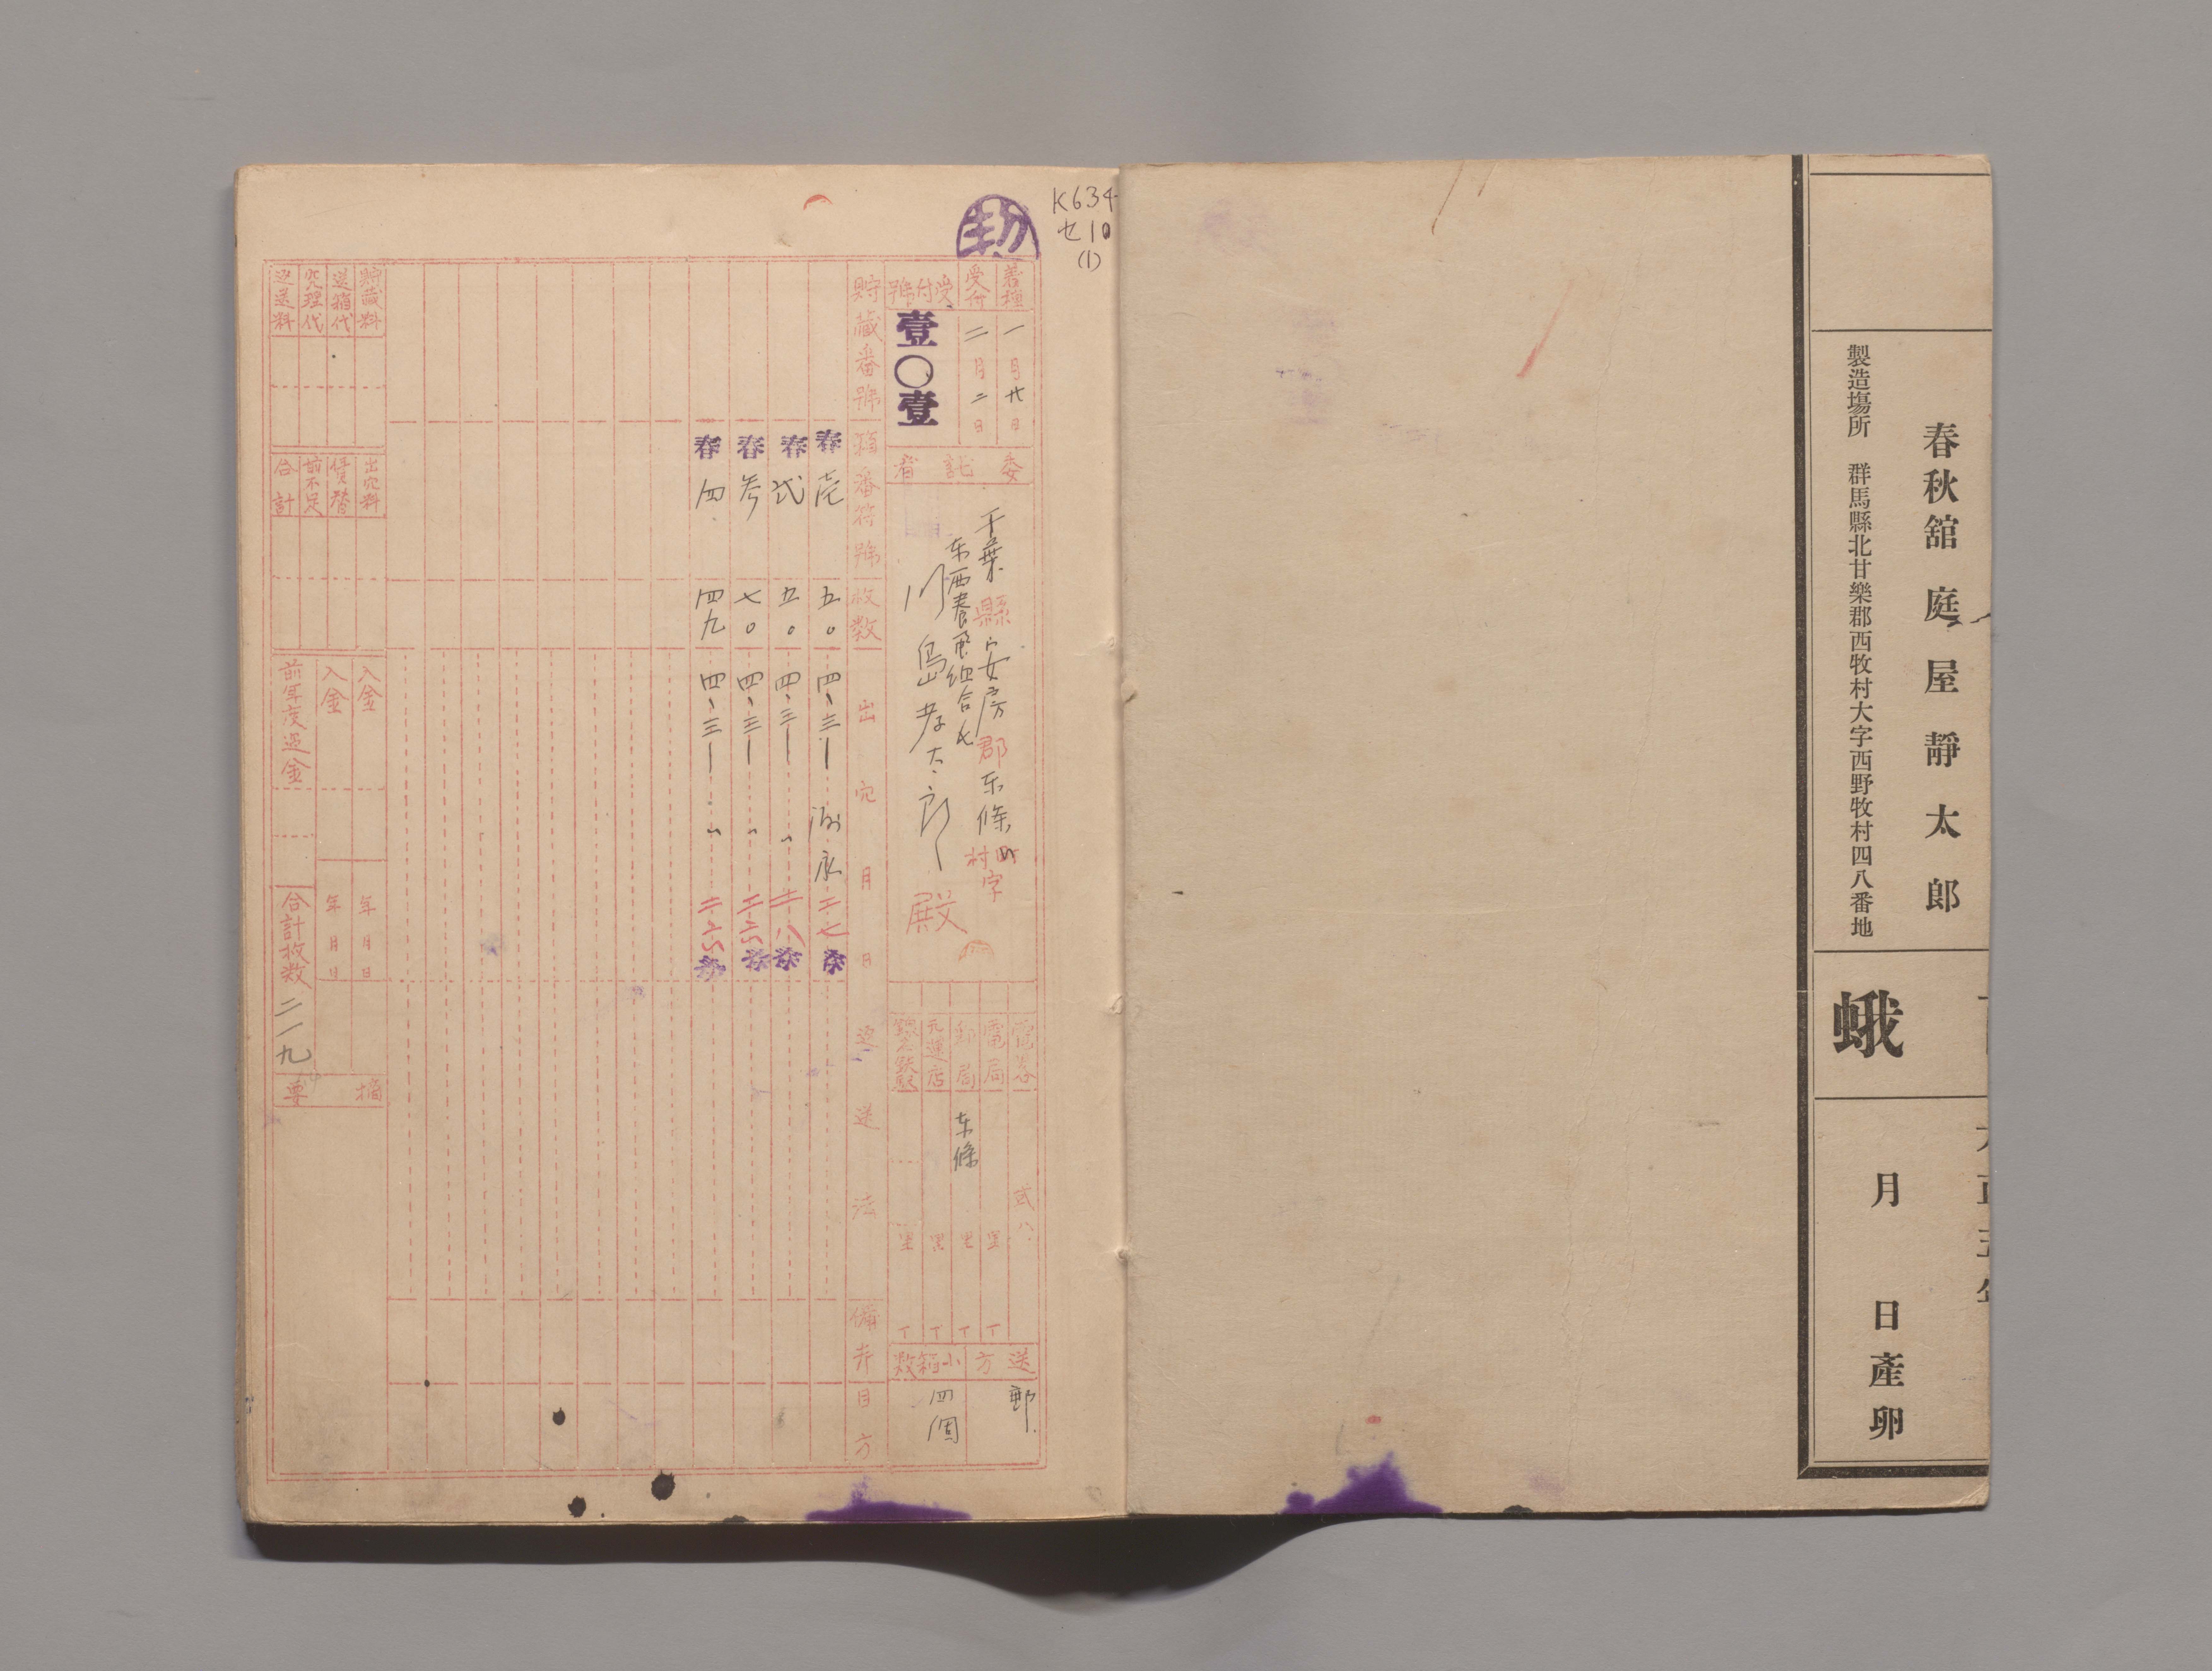 春秋舘 庭屋靜太郎
製造塲所 群馬縣北甘樂郡西牧村大字西野牧村四八番地
蛾
月 日產卵
K634
セ10
(1)
着種 一月廿日
受付 二月二日
受付號 壹〇壹
委託者
千葉縣安房郡东條村町字
东西養蚕组合長
川島孝太郎殿
電畧 弐八
電局 里 丁
郵局 东條 里 丁
元運店 里 丁
里 丁
送方 郵
小箱数 四個
貯藏番號
箱番符號
枚数
出穴月日
逓送法
備考目方
春 壱 五〇 四、三 二七 春
春 弐 五〇 四、三 〃 二八 春
春 参 七〇 四、三 〃 二六 春
春 四 四九 四、三 〃 二六 春
貯藏料
送箱代
荒理代
逓送料
出穴料
償替
前不足
合計
入金 年月日
入金 年月日
前年度過金
合計枚数 二一九
摘要